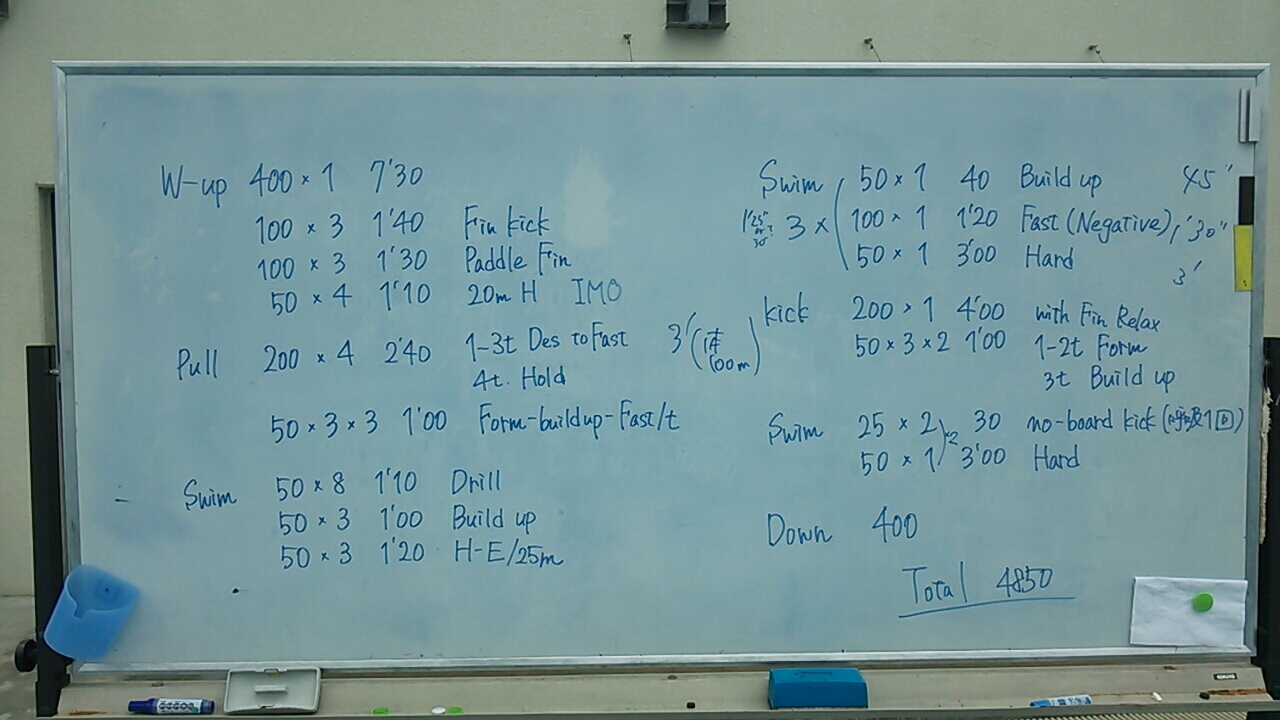 W-up 400 × 1 7'30
100 × 3 1'40 Fin kick
100 × 3 1'30 Paddle Fin
50 × 4 1'10 20m H IMO
Pull 200 × 4 2'40 1-3t Des to Fast
4t. Hold
3' 100m
50 × 3 × 3 1'00 Form-buildup-Fast/t
Swim 50 × 8 1'10 Drill
50 × 3 1'00 Build up
50 × 3 1'20 H-E/25m
Swim 50 × 1 40 Build up 45"
1'25" 30" 3 × 100 × 1 1'20 Fast (Negative) 1'30"
50 × 1 3'00 Hard 3'
kick 200 × 1 4'00 with Fin Relax
50 × 3 × 2 1'00 1-2t Form
3t Build up
Swim 25 × 2 30 no-board kick (呼吸1回)
50 × 1 ×2 3'00 Hard
Down 400
Total 4850